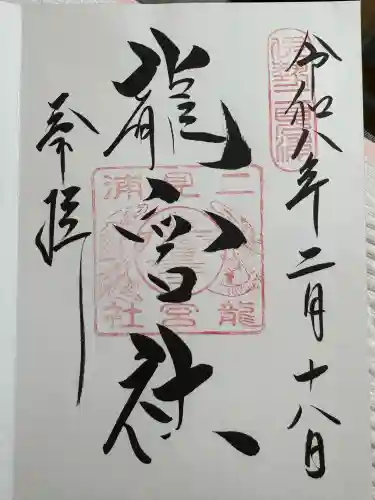 令和八年二月十八日
龍宮社
奉拝
二見浦
龍宮社